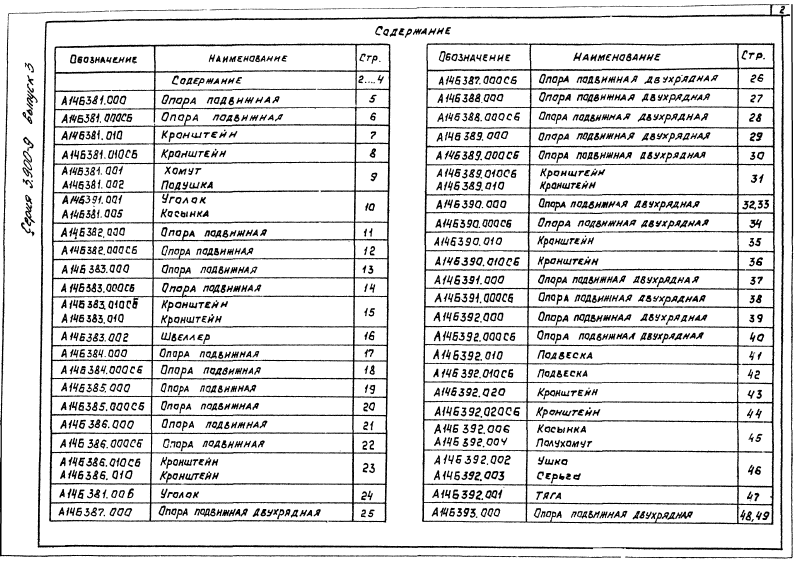 2
Содержание
Серия 3.900-9 выпуск 3
Обозначение Наименование Стр.
Содержание 2....4
А14Б381.000 Опора подвижная 5
А14Б381.000СБ Опора подвижная 6
А14Б381.010 Кронштейн 7
А14Б381.010СБ Кронштейн 8
А14Б381.001 Хомут
9
А14Б381.002 Подушка
А14Б391.001 Уголок
10
А14Б381.005 Косынка
А14Б382.000 Опора подвижная 11
А14Б382.000СБ Опора подвижная 12
А14Б383.000 Опора подвижная 13
А14Б383.000СБ Опора подвижная 14
А14Б383.010СБ Кронштейн
15
А14Б383.010 Кронштейн
А14Б383.002 Швеллер 16
А14Б384.000 Опора подвижная 17
А14Б384.000СБ Опора подвижная 18
А14Б385.000 Опора подвижная 19
А14Б385.000СБ Опора подвижная 20
А14Б386.000 Опора подвижная 21
А14Б386.000СБ Опора подвижная 22
А14Б386.010СБ Кронштейн
23
А14Б386.010 Кронштейн
А14Б381.006 Уголок 24
А14Б387.000 Опора подвижная двухрядная 25
Обозначение Наименование Стр.
А14Б387.000СБ Опора подвижная двухрядная 26
А14Б388.000 Опора подвижная двухрядная 27
А14Б388.000СБ Опора подвижная двухрядная 28
А14Б389.000 Опора подвижная двухрядная 29
А14Б389.000СБ Опора подвижная двухрядная 30
А14Б389.010СБ Кронштейн
31
А14Б389.010 Кронштейн
А14Б390.000 Опора подвижная двухрядная 32,33
А14Б390.000СБ Опора подвижная двухрядная 34
А14Б390.010 Кронштейн 35
А14Б390.010СБ Кронштейн 36
А14Б391.000 Опора подвижная двухрядная 37
А14Б391.000СБ Опора подвижная двухрядная 38
А14Б392.000 Опора подвижная двухрядная 39
А14Б392.000СБ Опора подвижная двухрядная 40
А14Б392.010 Подвеска 41
А14Б392.010СБ Подвеска 42
А14Б392.020 Кронштейн 43
А14Б392.020СБ Кронштейн 44
А14Б392.006 Косынка
45
А14Б392.004 Полухомут
А14Б392.002 Ушко
46
А14Б392.003 Серьга
А14Б392.001 Тяга 47
А14Б393.000 Опора подвижная двухрядная 48,49